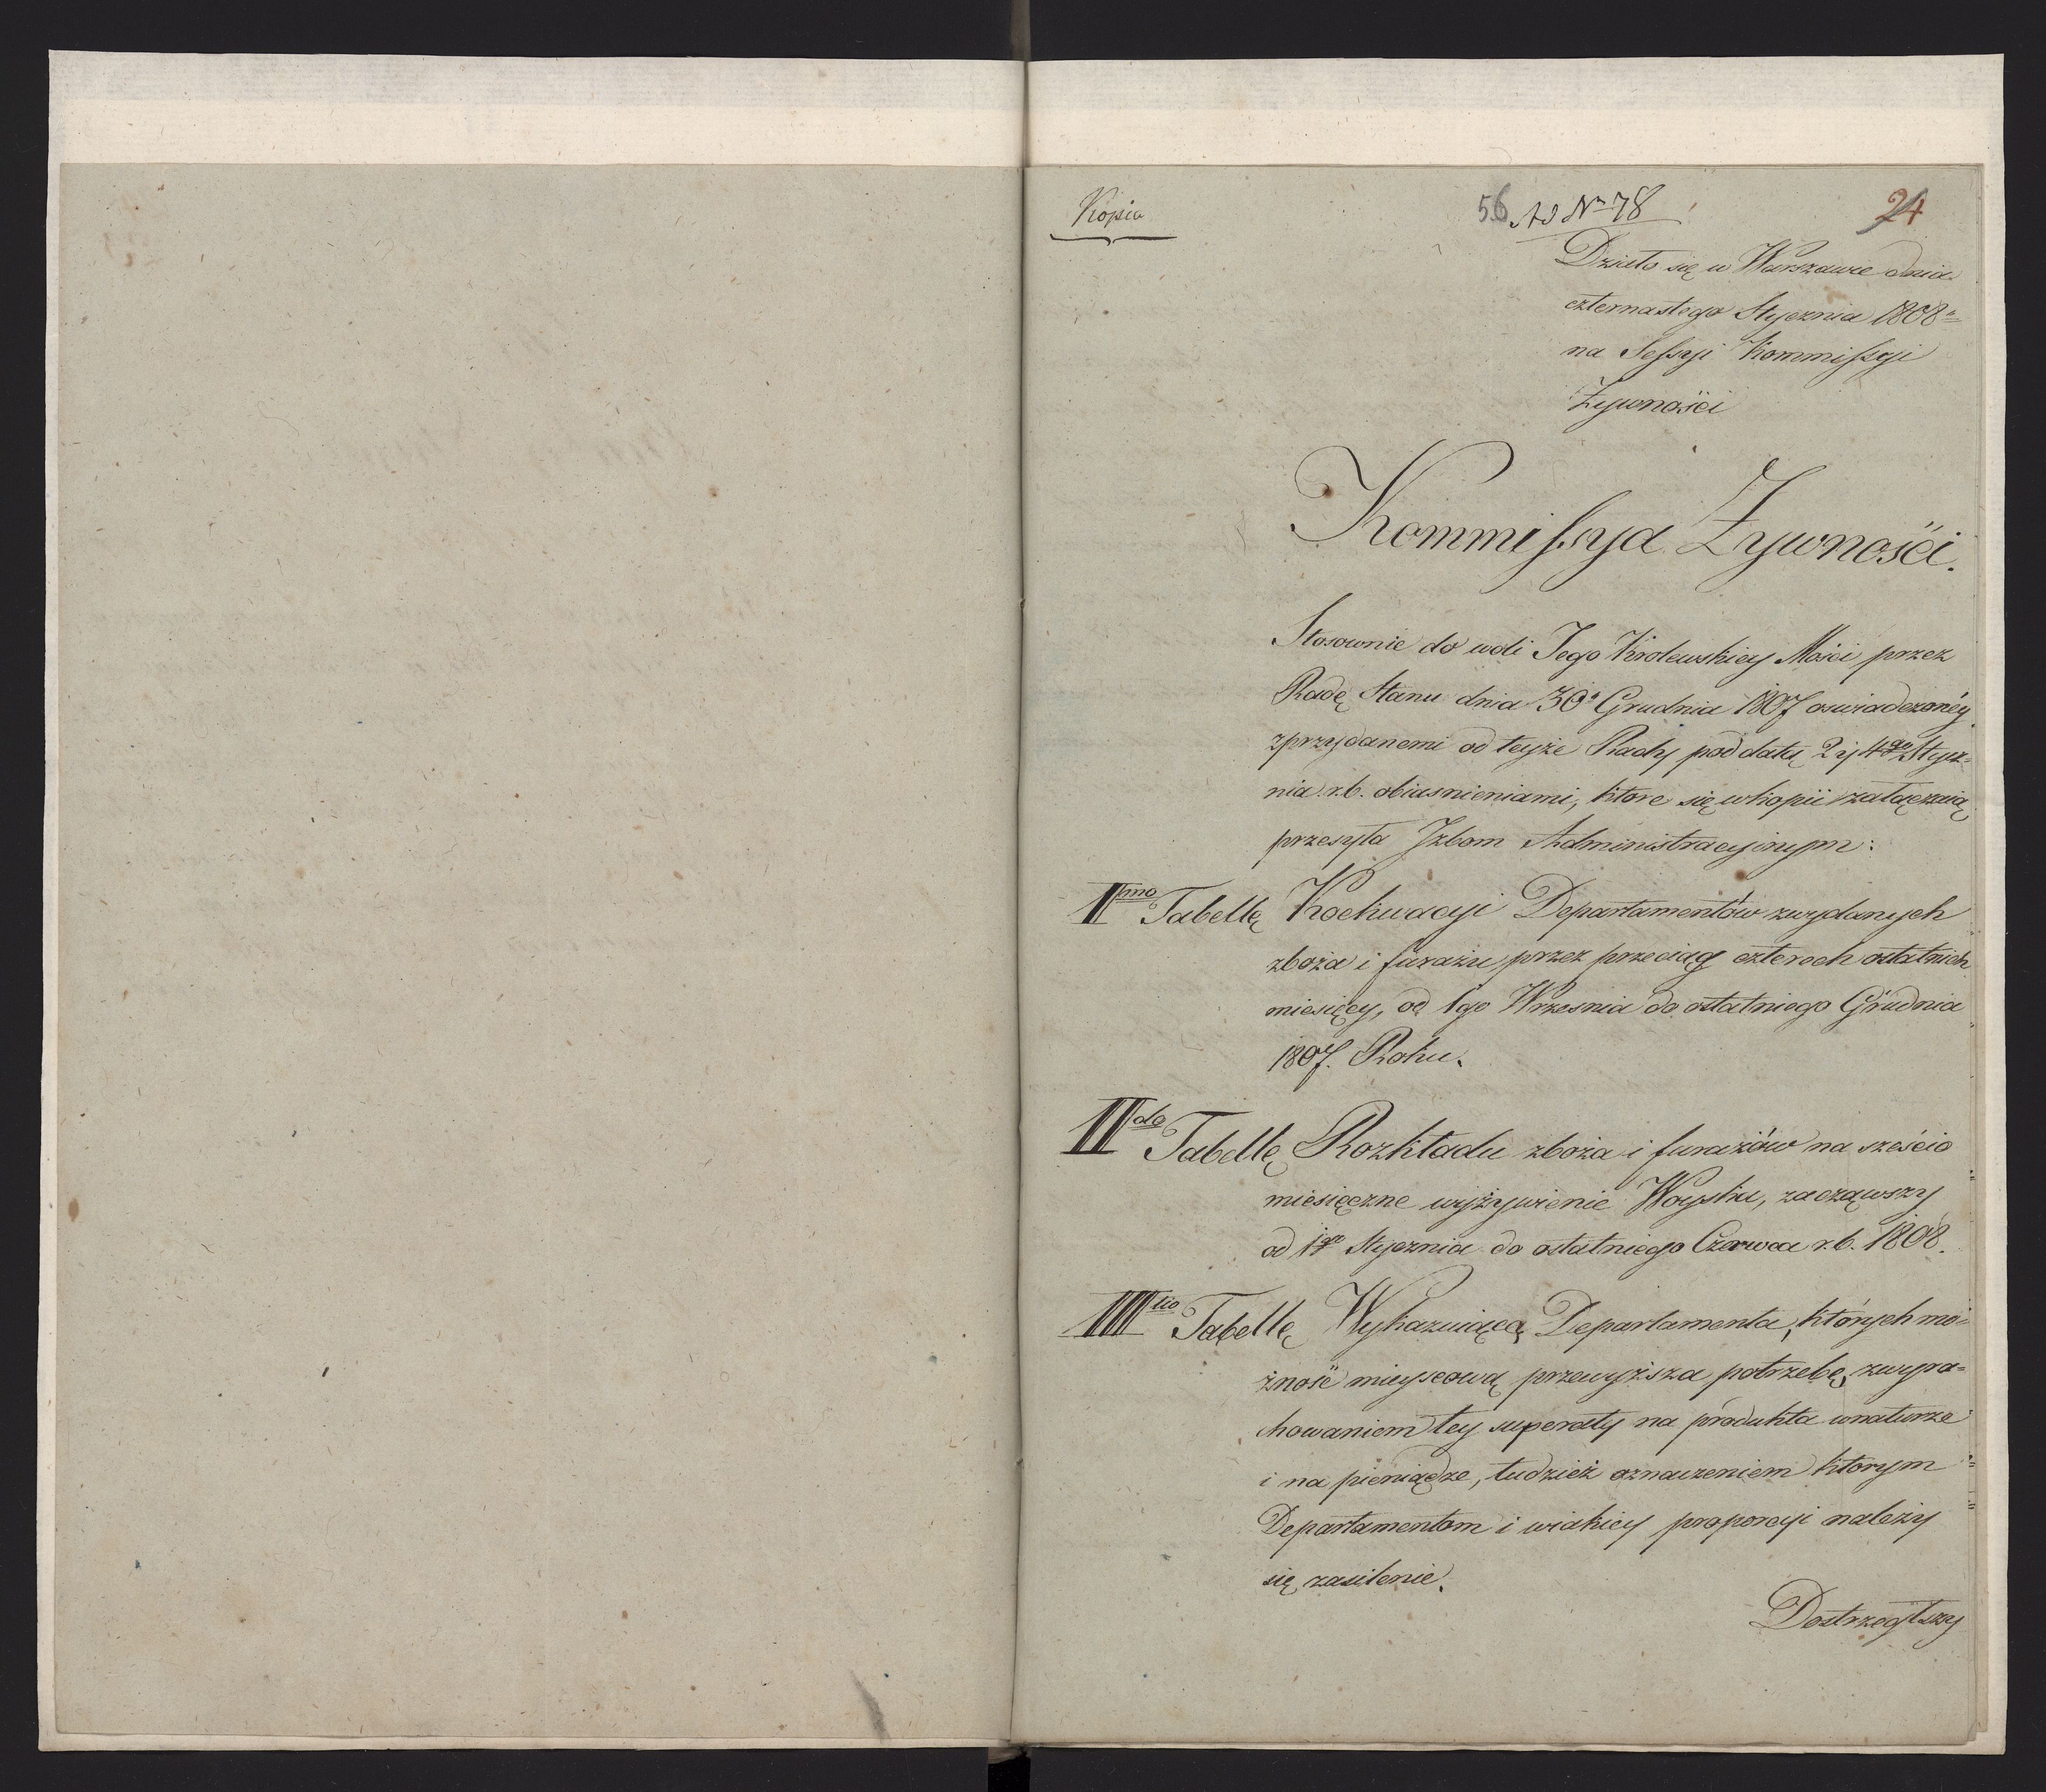 Kopia
56 Ad Nr 78
24
Działo się w Warszawie dnia
czternastego Stycznia 1808 =
na Sessyi Kommissyi
Żywnośći
Kommissya Żywnośći.
Stosownie do woli Jego Krolewskiey Mośći przez
Radę Stanu dnia 30º Grudnia 1807 oswiadczonéy
zprzydanemi od teyże Rady pod datą 2 y 4go Stycz=
nia r.b. obiasnieniami, ktore się wkopii załączaią
przesyła Jzbom Administracyinym:
Imo Tabellę Koekwacyi Departamentów zwydanych
zboża i furażu przez przeciąg czterech ostatnich
miesięcy, od 1go Wrzesnia do ostatniego Grudnia
1807. Roku.
IIdo Tabellę Rozkładu zboża i furażów na sześcio
miesięczne wyżywienie Woyska, zacząwszy
od 1go Stycznia do ostatniego Czerwca r.b. 1808.
IIItio Tabellę Wykazuiącą Departamenta, których mo=
żność mieyscową przewyższa potrzebę, zwyra=
chowaniem tey superaty na produkta wnaturze
i na pieniądze, tudzież oznaczeniem ktorym
Departamentom i wiakiey proporcyi należy
się zasilenie.
Dostrzegłszy